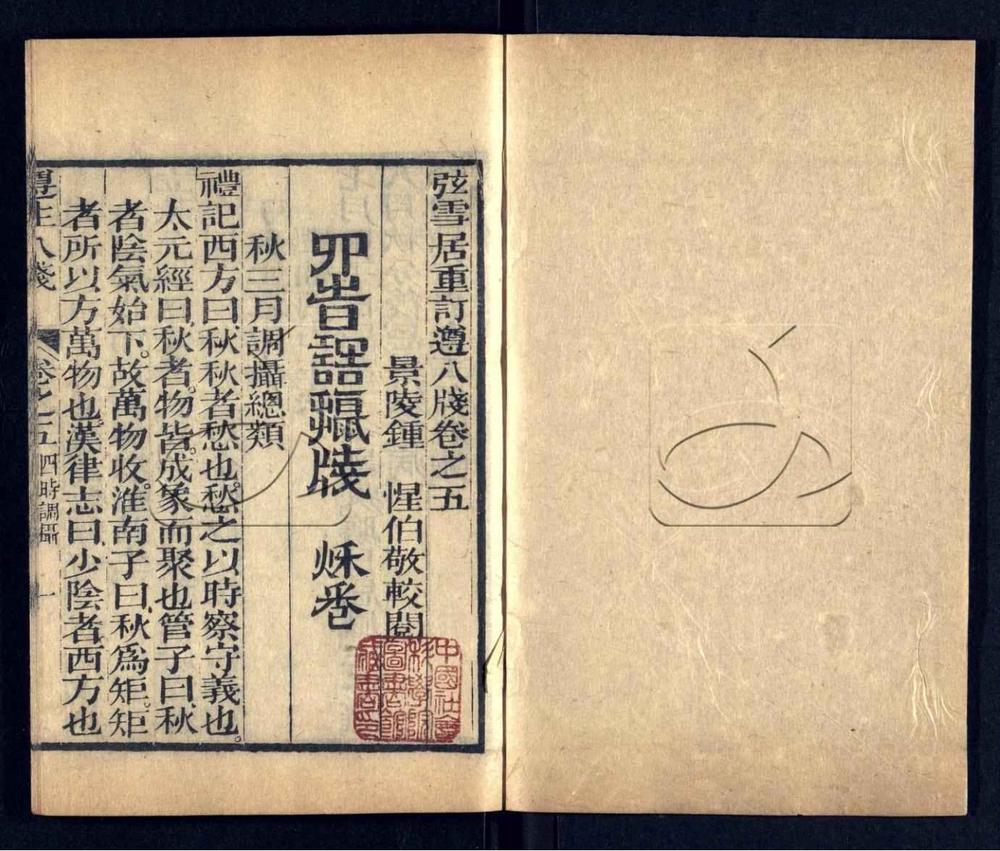 弦雪居重訂遵八牋卷之五
景陵鍾　惺伯敬較閱
牋　秌卷
秋三月調攝總類
禮記西方曰秋秋者愁也愁之以時察守義也。
太元經曰秋者物皆成象而聚也管子曰秋
者陰氣始下。故萬物收。淮南子曰秋爲矩。矩
者所以方萬物也漢律志曰少陰者西方也
遵生八牋　卷之五　四時調攝　一
中國社會
科學院
圖書館
藏書印